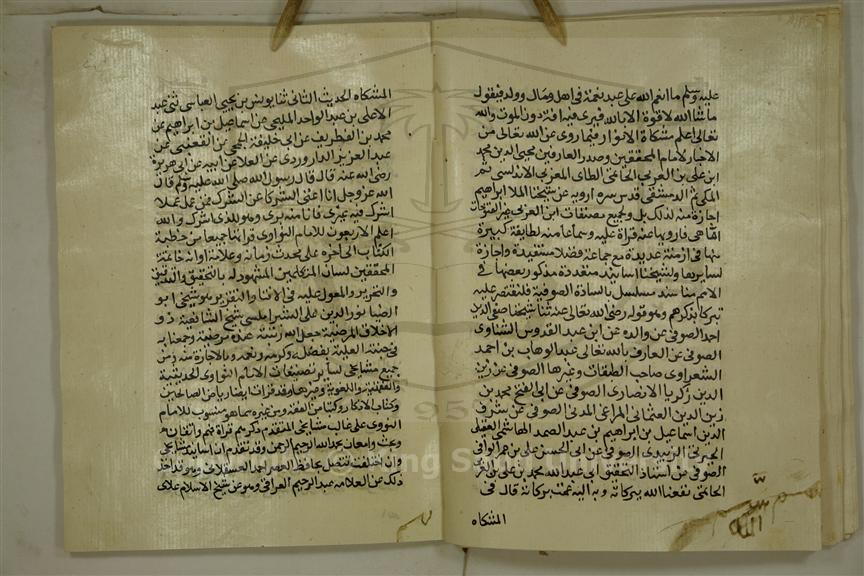 عليه وسلم ما انعم الله على عبد نعمة في اهل ومال وولد فيقول
ما شاء الله لا قوة الا بالله فيرى فيه افة دون الموت والله
تعالى اعلم مشكاة الانوار فيما روى عن الله تعالى من
الاخبار لامام المحققين وصدر العارفين محيى الدين محمد
ابن على بن العربي الحاتمي الطاي المغربي الاندلسي ثم
المكي ثم الدمشقي قدس سره ارويه عن شيخنا الملا ابراهيم
اجازة منه لذلك بل ولجميع مصنفات ابن العربي غير الفتوحات
فارويها عنه قراة عليه وسماعا منه لطايفة كبيرة
منها في ازمنة عديدة مع جماعة فضلا مستفيدة واجازة
لسايرها ولشيخنا اسانيد متعددة مذكور بعضها في
الامم منا سند مسلسل بالسادة الصوفية فلنقتصر عليه
تبركا بذكرهم وهو قوله رضي الله تعالى عنه ثنا شيخنا صفي الدين
احمد الصوفي عن والده عن ابن عبد القدوس الشناوي
الصوفي عن العارف بالله تعالى عبد الوهاب بن احمد
الشعراوي صاحب الطبقات وغيرها الصوفي عن زين
الدين زكريا الانصاري الصوفي عن ابي الفتح محمد بن
زين الدين العثماني المراغي المدني الصوفي عن شرف
الدين اسماعيل بن ابراهيم بن عبد الصمد الهاشمي العقيلي
الجبرتي الزبيدي الصوفي عن ابي الحسن علي بن عمر الواني
الصوفي عن استاذ التحقيق ابي عبد الله محمد بن علي بن العربي
الحاتمي نفعنا الله ببركاته وبه اليه عمت بركاته قال في
المشكاه
المشكاه الحديث الثاني ثنا يونس بن يحيى العباسي ثني عبد
الاعلى بن عبد الواحد المليحي عن اسماعيل بن ابراهيم عن
محمد بن الغطريف عن ابي خليفة الجمحي عن القعنبي عن
عبد العزيز الدراوردي عن العلا عن ابيه عن ابي هريرة
رضي الله عنه قال قال رسول الله صلى الله عليه وسلم قال
الله عز وجل انا اغنى الشركا عن الشرك فمن عمل عملا
اشرك فيه غيري فانا منه بري وهو للذي اشرك والله
اعلم الاربعون للامام النواوي قراتها جميعا من خطبة
الكتاب الى اخره على محدث زمانه وعلامة اوانه خاتمة
المحققين لسان المتكلمين المشهود له بالتحقيق والتدقيق
والتحرير والمعول عليه في الافتا والتقرير هو شيخي ابو
الضيا نور الدين علي الشبراملسي شيخ الشافعية ذو
الاخلاق المرضية جعل الله رتبته عنده مرضية وجمعنا به
في جنته العلية بفضله وكرمه ونعمه وبالاجازة منه ومن
جميع مشايخي لساير تصنيفات الامام النواوي الحديثية
والفقهية واللغوية وغيرها وقد قرات ايضا رياض الصالحين
وكتاب الاذكار وكثيرا من الفقه وغيره مما هو منسوب للامام
النووي على غالب مشايخي المتقدم ذكرهم قراة فهم واتقان
وبحث وامعان بحمد الله الرحيم الرحمن وقد تقدم ان اسانيد مشايخي
وان اختلفت تتصل بحافظ العصر احمد العسقلاني وهو قد اخذ
ذلك عن العلامه عبد الرحيم العراقي وهو عن شيخ الاسلام علاي